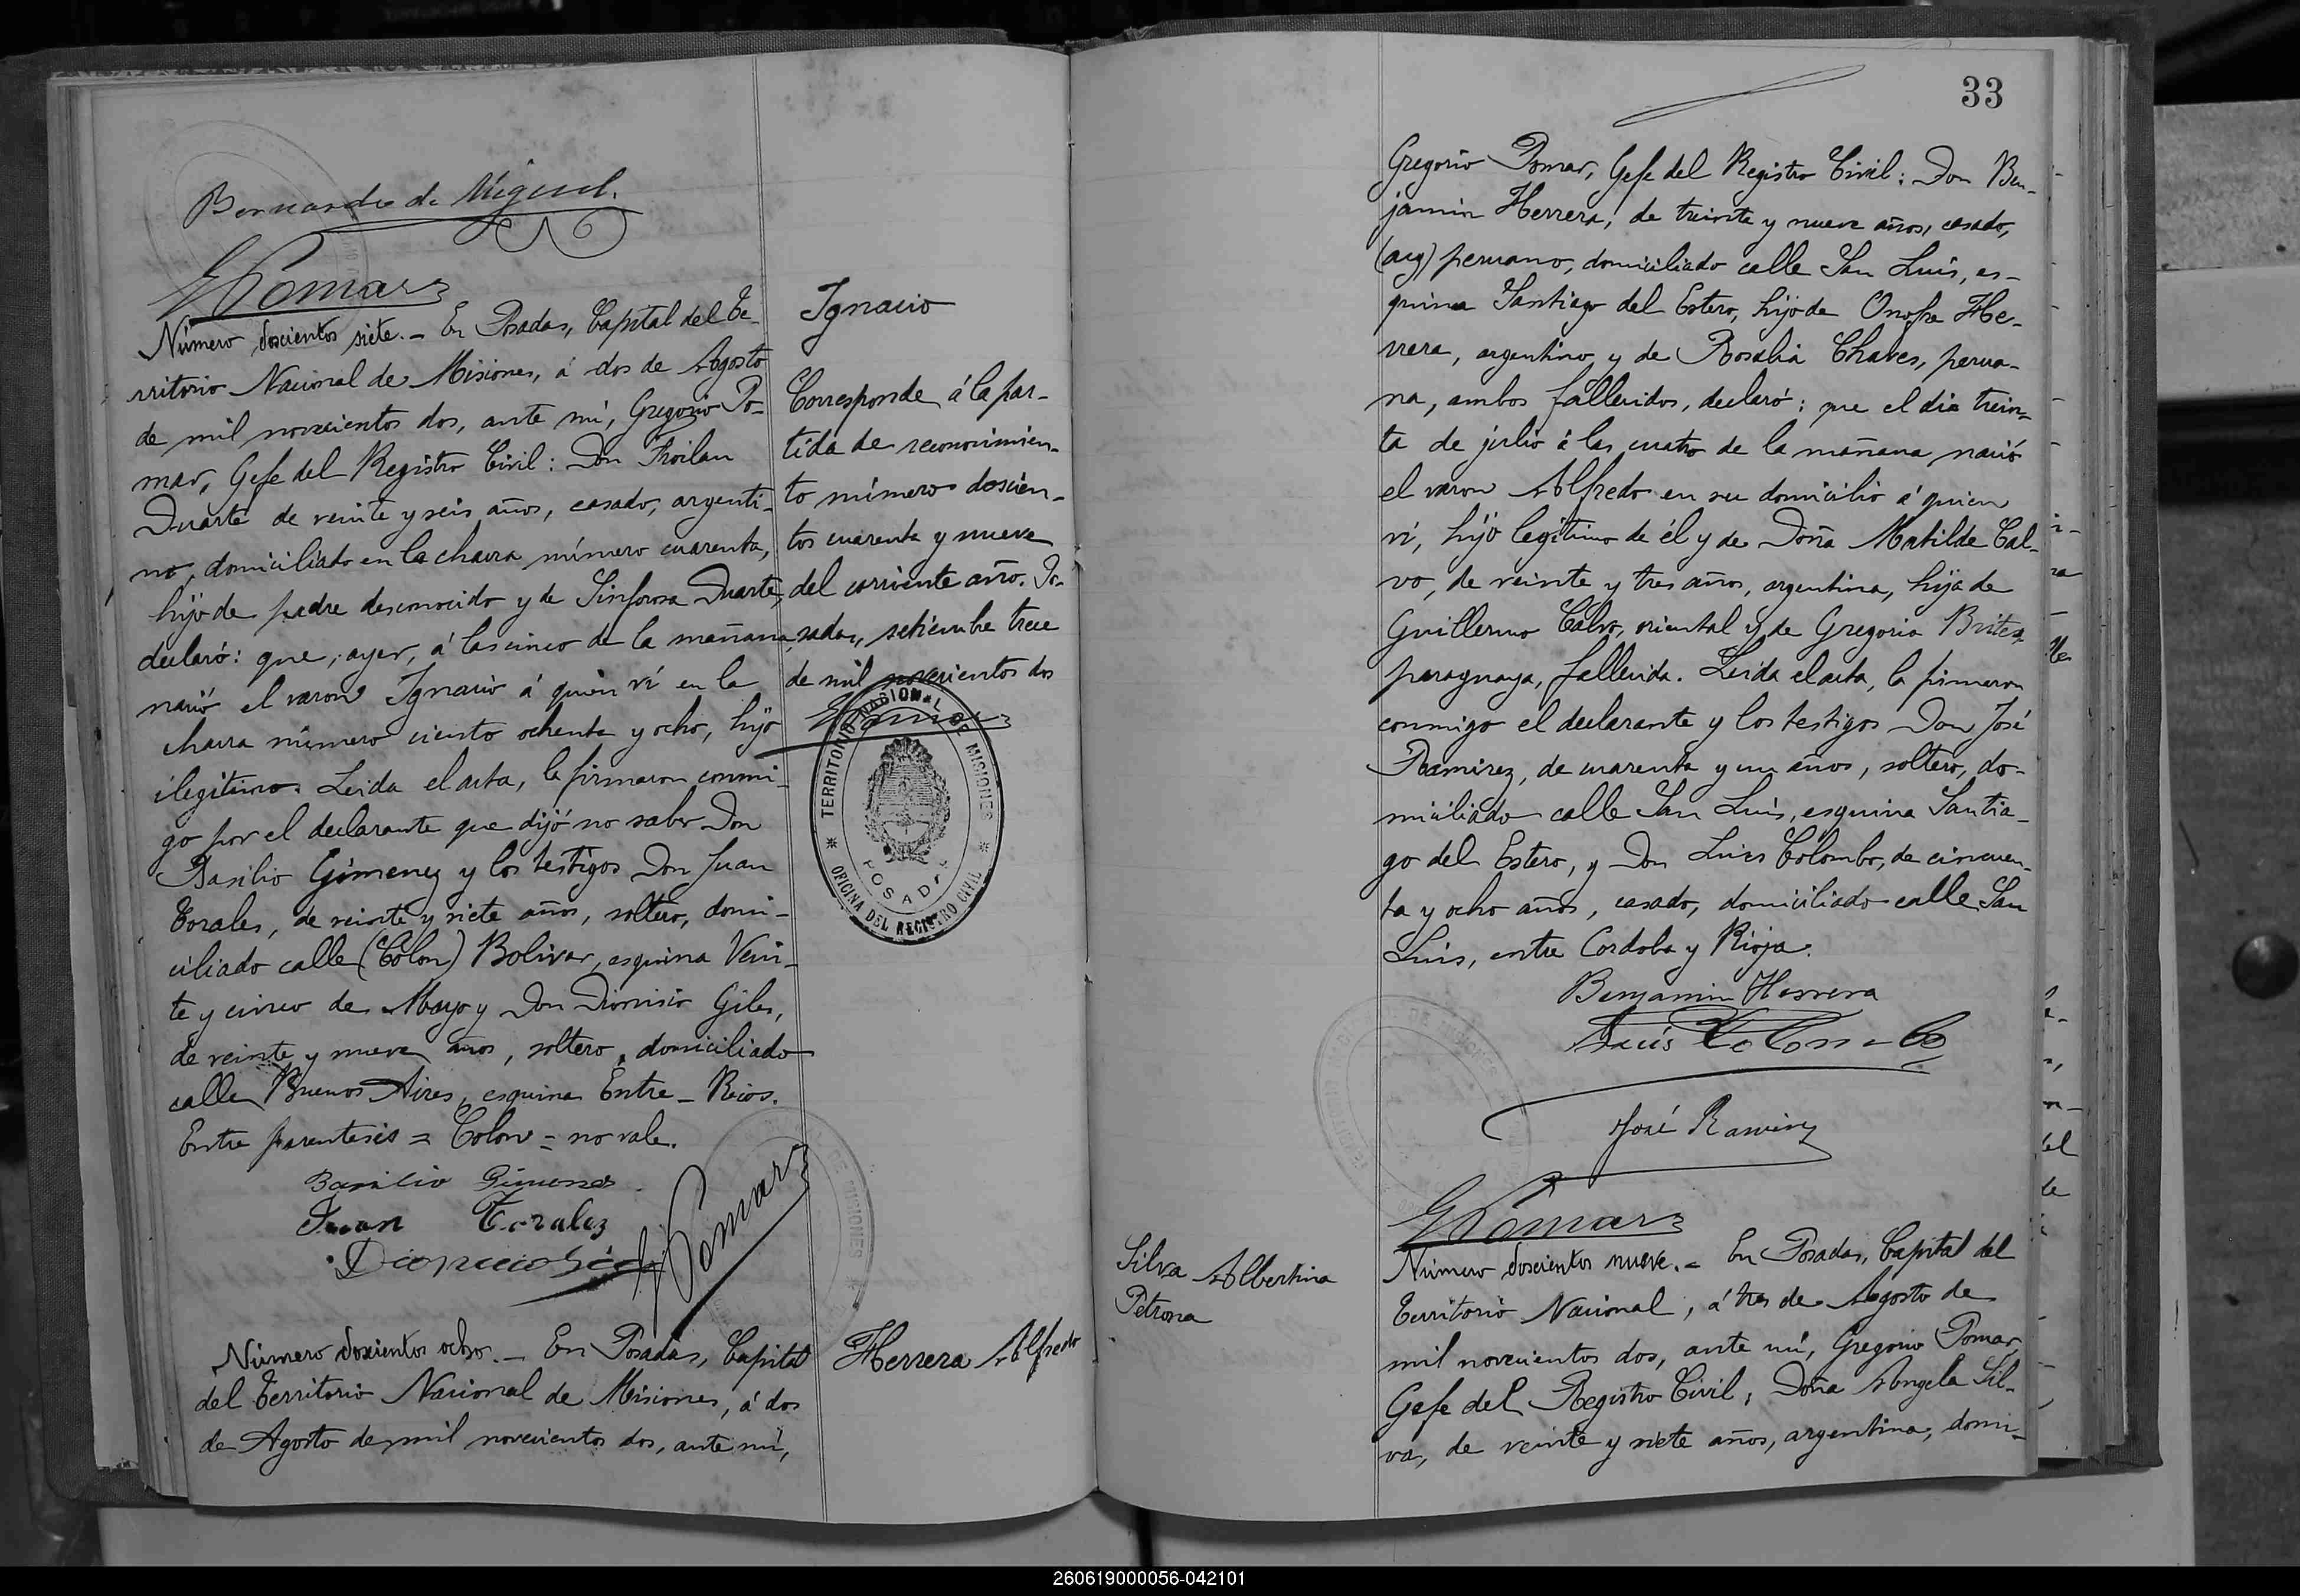 Bernardo de Miguel.
GPomar
Número doscientos siete. - En Posadas, Capital del Te-
rritorio Nacional de Misiones, á dos de Agosto
de mil novecientos dos, ante mí, Gregorio Po-
mar, Gefe del Registro Civil: Don Froilan
Duarte de veinte y seis años, casado, argenti-
no, domiciliado en la chacra número cuarenta,
hijo de padre desconocido y de Sinforosa Duarte,
declaró: que, ayer, á las cinco de la mañana,
nació el varon Ignacio á quien ví en la
chacra número ciento ochenta y ocho, hijo
ilegítimo. Leida el acta, la firmaron conmi-
go por el declarante que dijó no saber Don
Basilio Gimenez y los testigos Don Juan
Torales, de veinte y siete años, soltero, domi-
ciliado calle (Colon) Bolivar, esquina Vein-
te y cinco de Mayo y Don Dionisio Giles,
de veinte y nueve años, soltero, domiciliado
calle Buenos Aires, esquina Entre - Rios.
Entre parentesis = Colon = no vale.
Basilio Gimenez
Juan Toralez
GPomar
Número doscientos ocho. - En Posadas, Capital
del Territorio Nacional de Misiones, á dos
de Agosto de mil novecientos dos, ante mí,
Ignacio
Corresponde á la par-
tida de reconocimien-
to número doscien-
tos cuarenta y nueve
del corriente año. Po-
sadas, setiembre trece
de mil novecientos dos
GPomar
TERRITORIO NACIONAL DE MISIONES
POSADAS
OFICINA DEL REGISTRO CIVIL
Herrera Alfredo
33
Gregorio Pomar, Gefe del Registro Civil: Don Ben-
jamin Herrera, de treinta y nueve años, casado,
(arg) peruano, domiciliado calle San Luis, es-
quina Santiago del Estero, hijo de Onofre He-
rrera, argentino y de Rosalia Chaves, perua-
na, ambos fallecidos, declaró: que el dia trein-
ta de julio á las cuatro de la mañana nació
el varon Alfredo en su domicilio á quien
ví, hijo legítimo de él y de Doña Matilde Cal-
vo, de veinte y tres años, argentina, hija de
Guillermo Calvo, oriental y de Gregoria Britez,
paraguaya, fallecida. Leida el acta, la firmaron
conmigo el declarante y los testigos Don José
Ramirez, de cuarenta y un años, soltero, do-
miciliado calle San Luis, esquina Santia-
go del Estero, y Don Luis Colombo, de cincuen-
ta y ocho años, casado, domiciliado calle San
Luis, entre Cordoba y Rioja.
Benjamin Herrera
Luis Colombo
José Ramirez
GPomar
Silva Albertina
Petrona
Número doscientos nueve. - En Posadas, Capital del
Territorio Nacional, á tres de Agosto de
mil novecientos dos, ante mí, Gregorio Pomar,
Gefe del Registro Civil; Doña Angela Sil-
va, de veinte y siete años, argentina, domi-
260619000056-042101